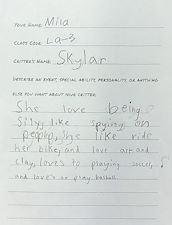 YOUR NAME: Mila
CLASS CODE: La-3
CRITTER'S NAME: Skylar
DESCRIBE AN EVENT, SPECIAL ABILITY, PERSONALITY, OR ANYTHING
ELSE YOU WANT ABOUT YOUR CRITTER:
She love being
Silly, like spying on
people, she like ride
her bike, and love art and
clay, loves to playing soccer,
and loves to play